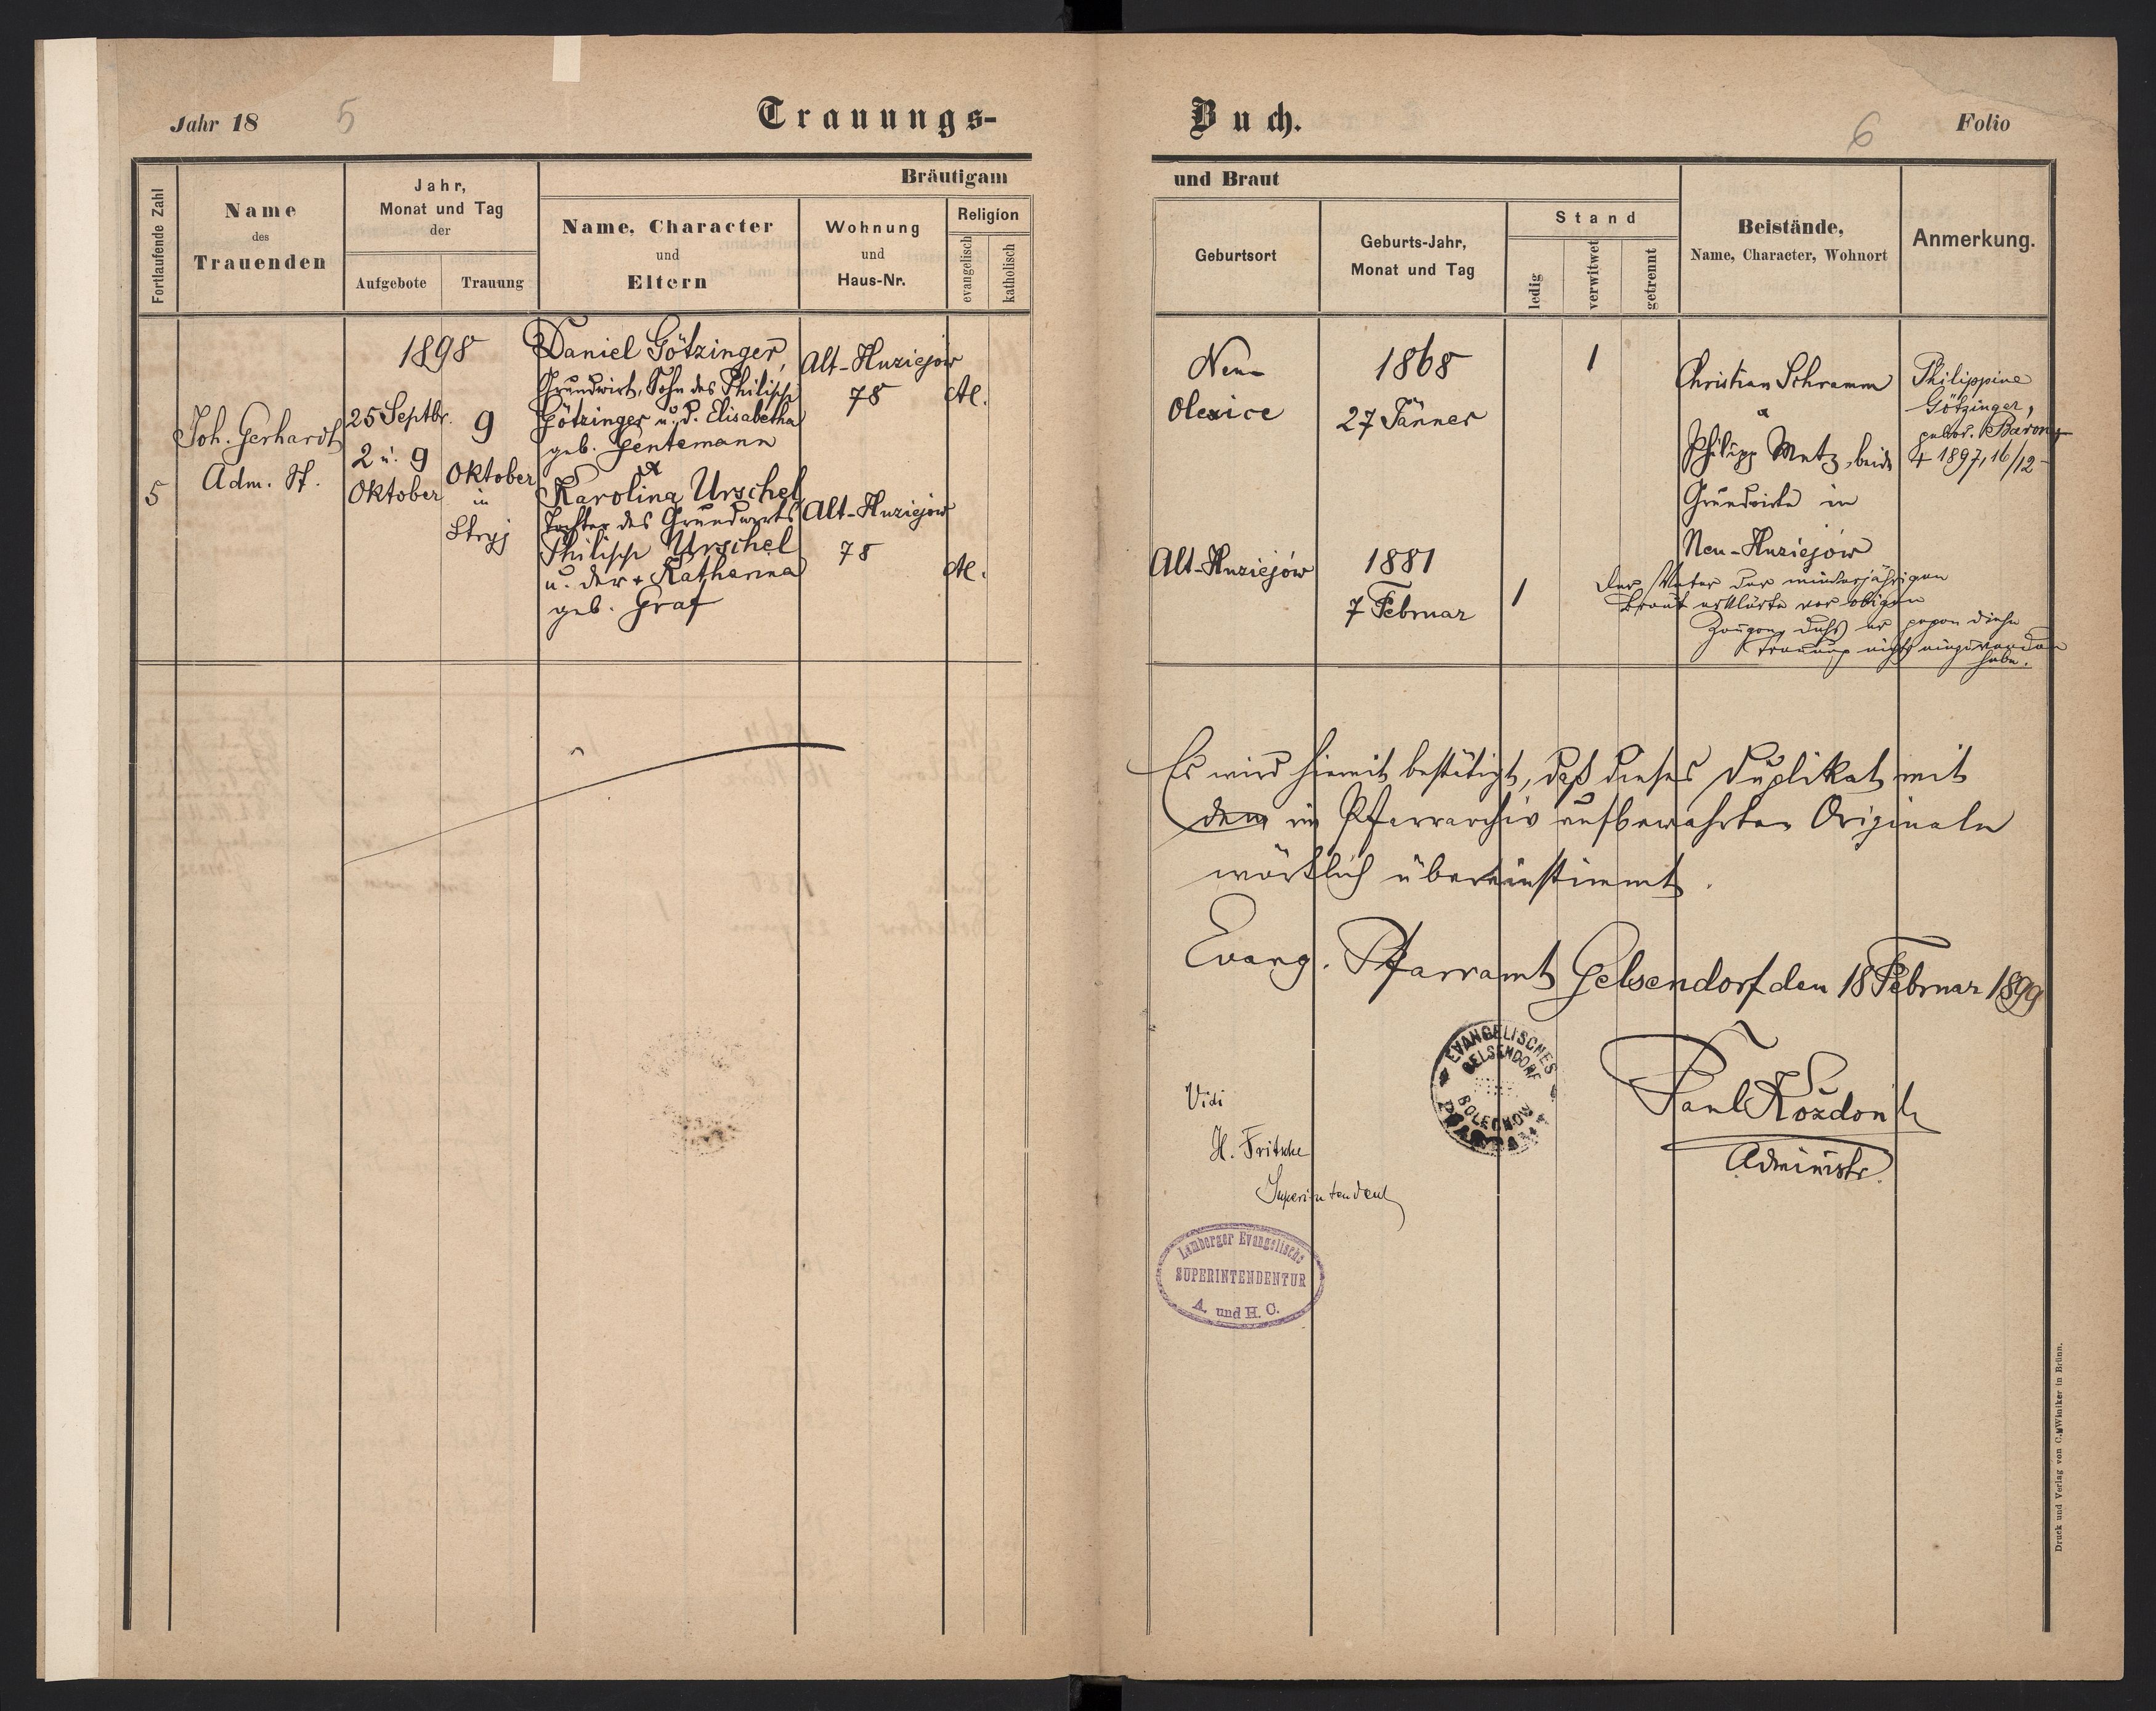 Jahr 18
5
Trauungs-
Fortlaufende Zahl
Name
des
Trauenden
Jahr,
Monat und Tag
der
Aufgebote
Trauung
Bräutigam
Name, Character
und
Eltern
Wohnung
und
Haus-Nr.
Religion
evangelisch
katholisch
5
Joh. Gerhardt
Adm. St.
1898
25 Septbr.
2 u. 9
Oktober
9
Oktober
in
Stryj
Daniel Götzinger,
Grundwirt, Sohn des Philipp
Götzinger u. d. Elisabetha
geb. Gentemann
&
Karolina Urschel
Tochter des Grundwirts
Philipp Urschel
u. der + Katharina
geb. Graf
Alt-Huziejów
78
Alt-Huziejów
78
AC.
AC.
Buch.
6
Folio
und Braut
Geburtsort
Geburts-Jahr,
Monat und Tag
Stand
ledig
verwitwet
getrennt
Beistände,
Name, Character, Wohnort
Anmerkung.
Neu-
Olexice
1868
27 Jänner
1
Christian Schramm
&
Philipp Metz, beide
Grundwirte in
Neu-Huziejów
Philippine
Götzinger,
gebor. Barong
+ 1897, 16/12
Alt-Huziejów
1881
7 Februar
1
Der Vater der minderjährigen
Braut erklärte vor obigen
Zeugen, daß er gegen diese
Trauung nichts einzuwenden
habe.
Es wird hiemit bestätigt, daß dieses Duplikat mit
dem im Pfarrarchiv aufbewahrten Originale
wörtlich übereinstimmt.
Evang. Pfarramt Gelsendorf den 18 Februar 1899
EVANGELISCHES
GELSENDORF
BOLECHOW
PFARRAMT
Paul Kozdon
Administr.
Vidi
H. Fritsche
Superintendent
Lemberger Evangelische
SUPERINTENDENTUR
A. und H. C.
Druck und Verlag von C. Winiker in Brünn.